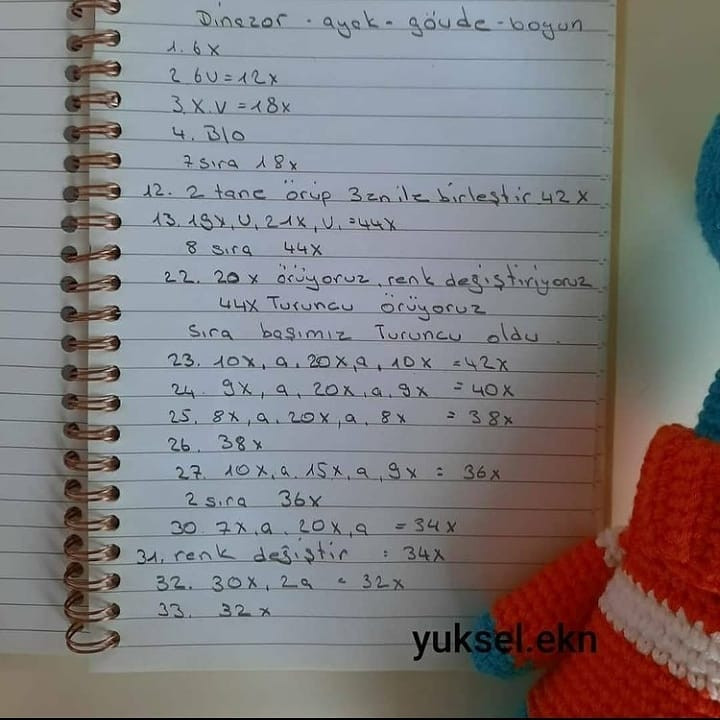 Dinazor - ayak - gövde - boyun
1. 6x
2. 6V=12x
3. x.V=18x
4. BLO
7 sıra 18x
12. 2 tane örüp 3zn ile birleştir 42x
13. 19x, V, 21x, V, =44x
8 sıra 44x
22. 20x örüyoruz, renk değiştiriyoruz
44x Turuncu örüyoruz
Sıra başımız Turuncu oldu.
23. 10x, a, 20x, a, 10x =42x
24. 9x, a, 20x, a, 9x =40x
25. 8x, a, 20x, a, 8x =38x
26. 38x
27. 10x, a, 15x, a, 9x = 36x
2 sıra 36x
30. 7x, a, 20x, a =34x
31. renk değiştir : 34x
32. 30x, 2a = 32x
33. 32x
yuksel.ekn